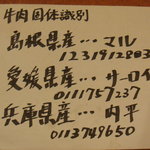 牛肉固体識別
島根県産…マル
1231912803
愛媛県産…サーロイ
0111757237
兵庫県産…内平
0113749650